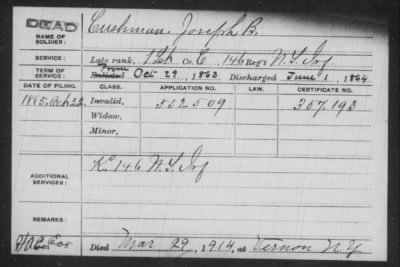 DEAD
NAME OF SOLDIER: Cushman, Joseph B.
SERVICE: Late rank, 1 Lt Co. E, 146 Reg't N.Y. Inf
TERM OF SERVICE: Enlisted From Oct 29, 1863 Discharged June 1, 1864
DATE OF FILING. CLASS. APPLICATION NO. LAW. CERTIFICATE NO.
1885, Oct 22 Invalid, 552509 357.193
Widow,
Minor,
ADDITIONAL SERVICES: K. 146 N.Y. Inf
REMARKS:
Died Mar 29, 1914, at Vernon N.Y.